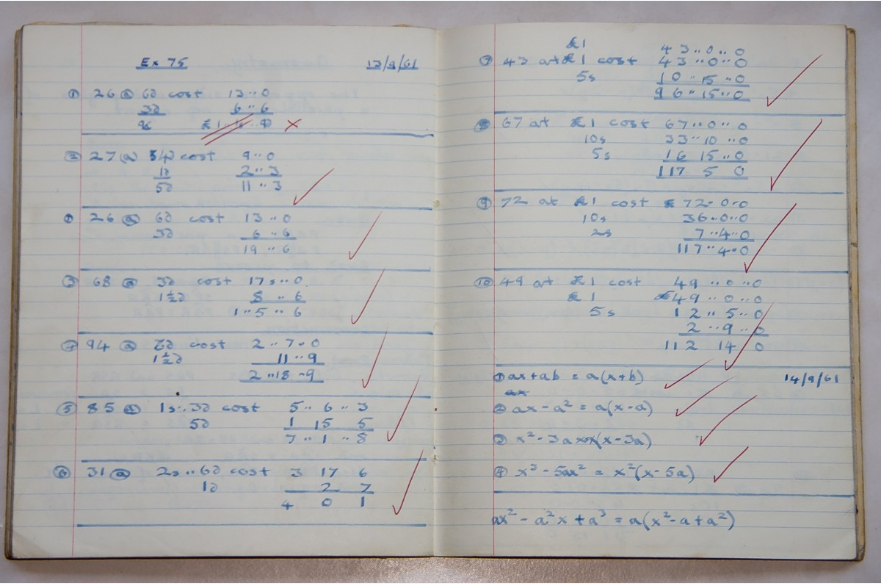 Ex 75 12/9/61
① 26 @ 6d cost 13..0
3d 6..6
9d
② 27 @ 4d cost 9..0
1d 2..3
5d 11..3
① 26 @ 6d cost 13..0
3d 6..6
19..6
③ 68 @ 3d cost 17s..0
1½d 8..6
1..5..6
④ 94 @ 6d cost 2..7..0
1½d 11..9
2..18..9
⑤ 85 @ 1s..3d cost 5..6..3
5d 1 15 5
7..1..8
⑥ 31 @ 2s..6d cost 3 17 6
1d 2 7
4 0 1
£1 43..0..0
⑦ 43 at £1 cost 43..0..0
5s 10..15..0
96..15..0
⑧ 67 at £1 cost 67..0..0
10s 33..10..0
5s 16 15..0
117 5 0
⑨ 72 at £1 cost £72..0..0
10s 36..0..0
2s 7..4..0
117..4..0
⑩ 49 at £1 cost 49..0..0
£1 49..0..0
5s 12..5..0
2..9..0
112 14 0
① ax+ab = a(x+b) 14/9/61
② ax-a² = a(x-a)
③ x²-3ax = x(x-3a)
④ x³-5ax² = x²(x-5a)
ax²-a²x+a³ = a(x²-a+a²)